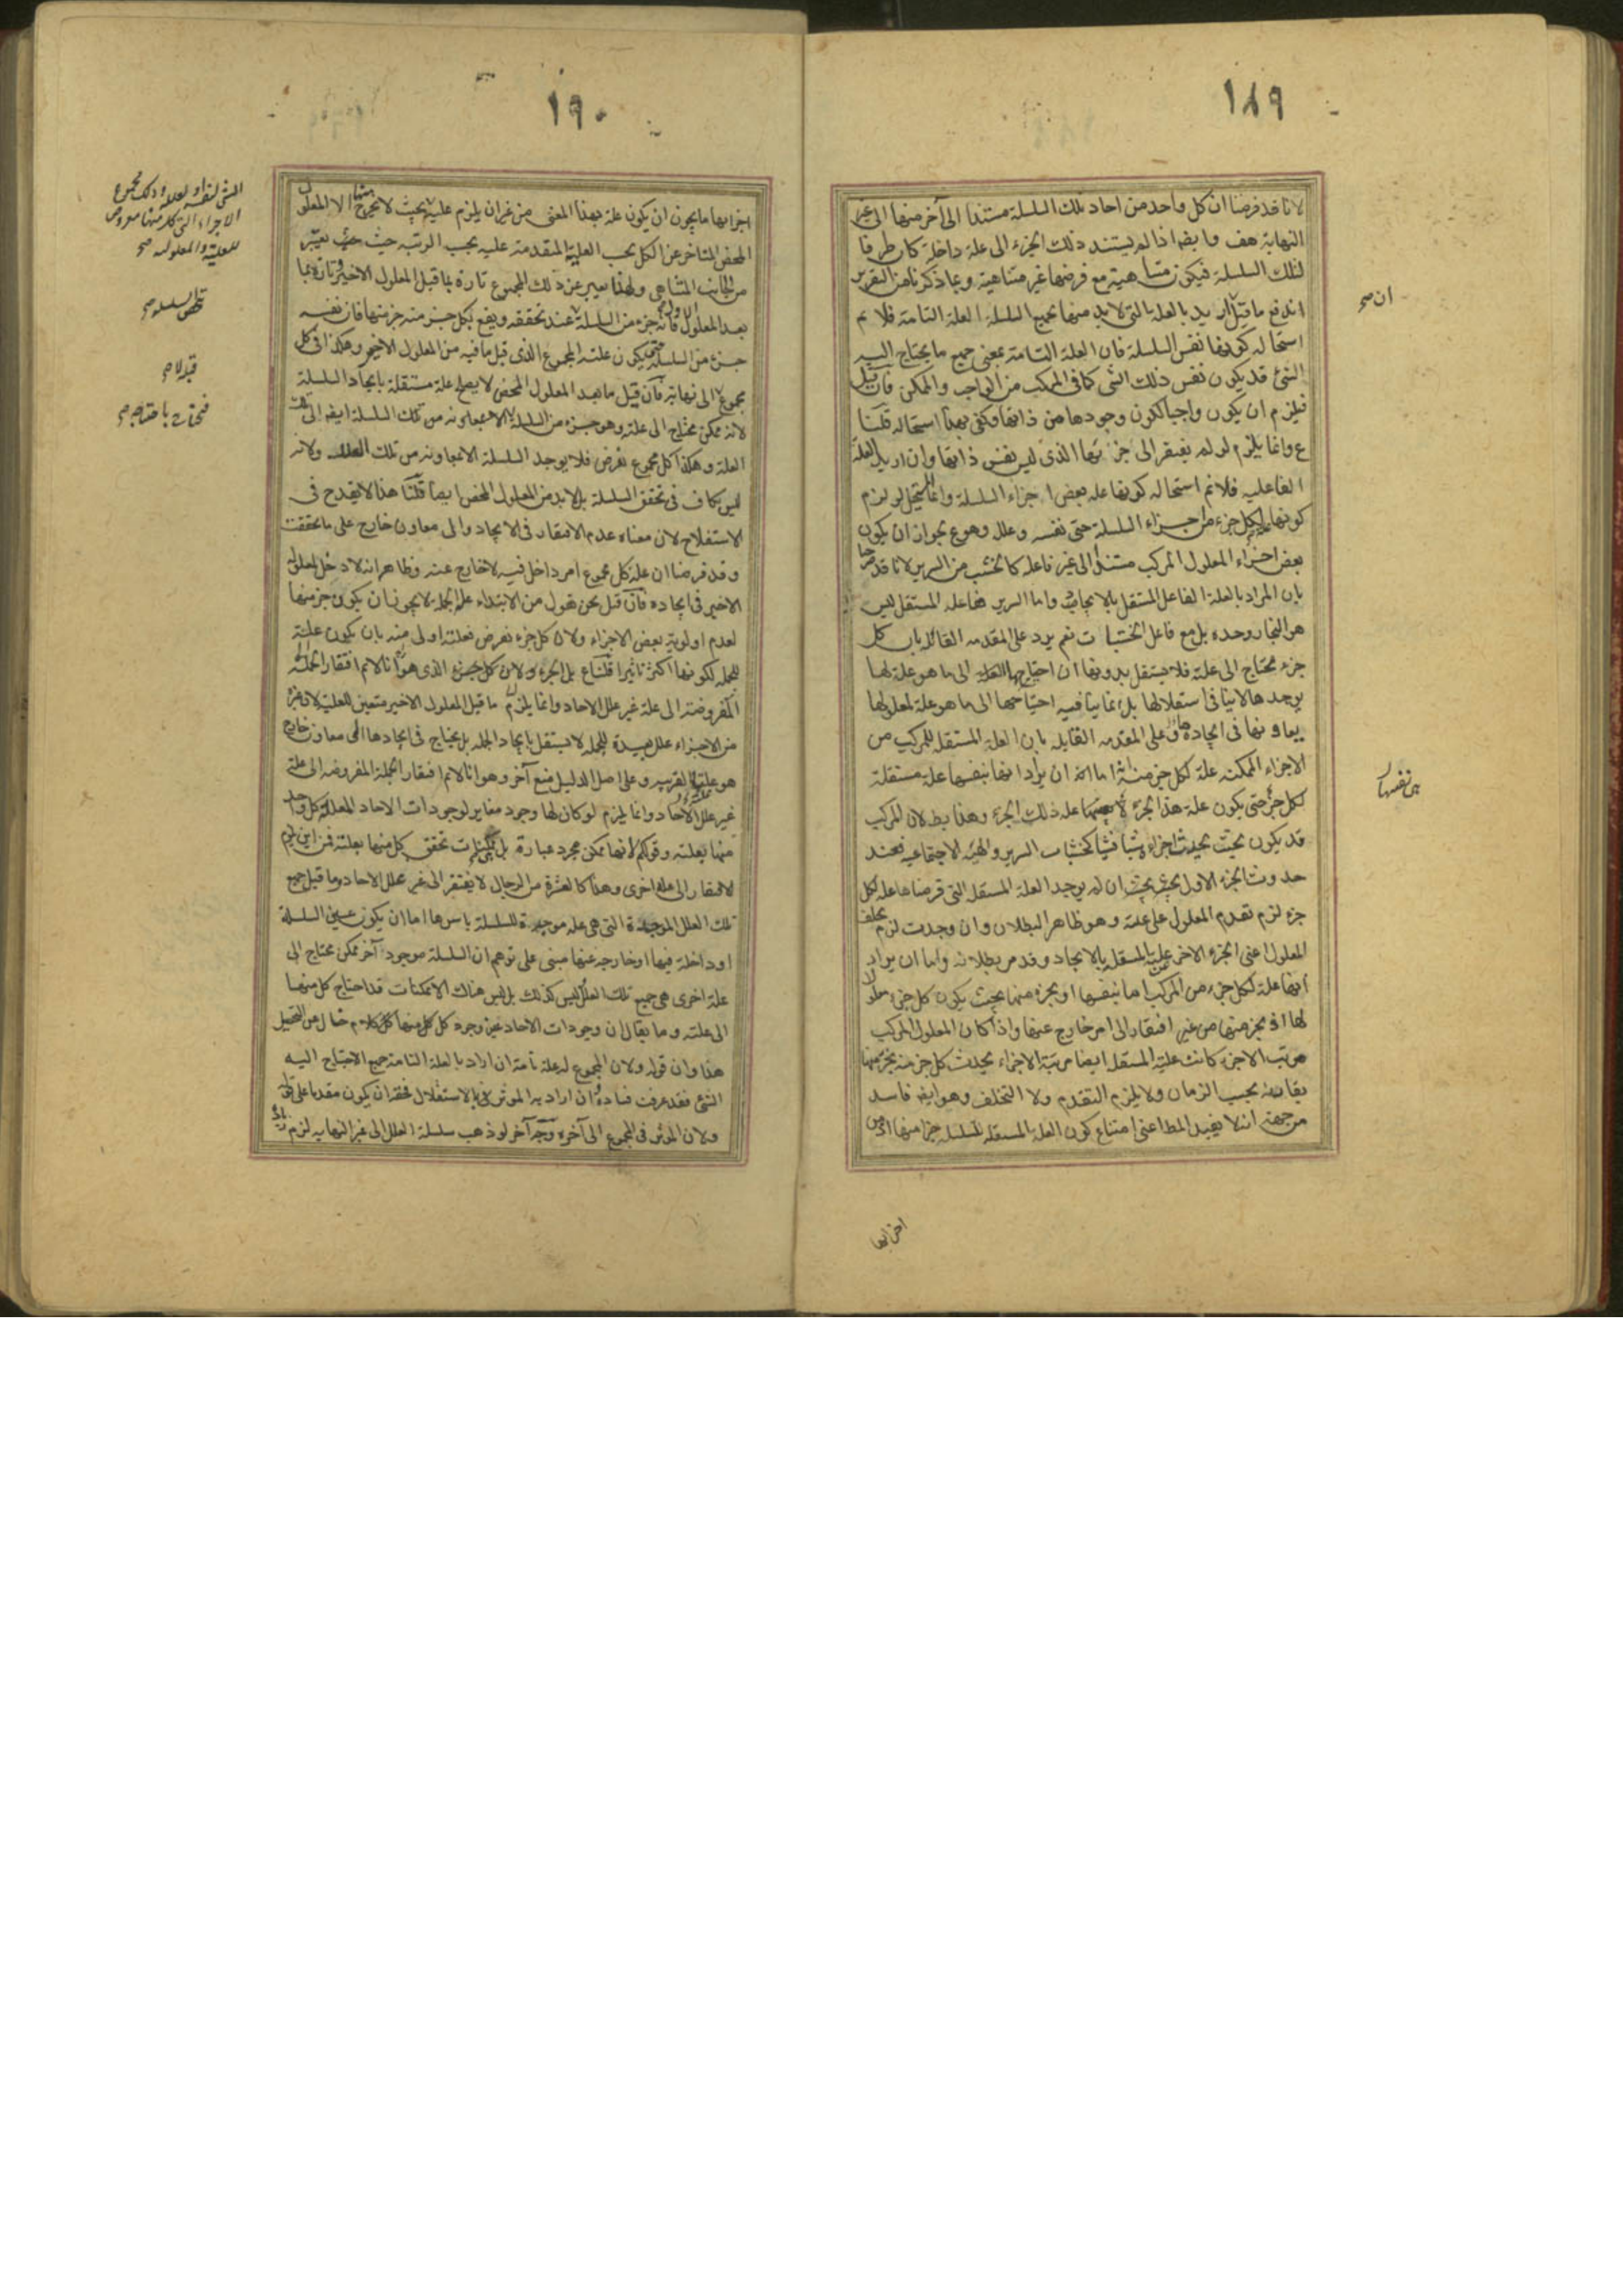 ١٨٩
لانا قد فرضنا ان كل واحد من احاد تلك السلسلة مستندا الى آخر منها الى غير
النهاية هف وايضا اذا لم يستند ذلك الجزء الى علة داخلة كان طرفا
لتلك السلسلة فيكون متناهية مع فرضها غير متناهية وبما ذكرنا من التقرير
اندفع ما قيل اريد بالعلة التى لابد منها لجميع السلسلة العلة التامة فلا نم
استحالة كونها نفس السلسلة فان العلة التامة بمعنى جميع ما يحتاج اليه
الشئ قد يكون نفس ذلك الشئ كما فى المركب من الواجب والممكن فان قيل
فيلزم ان يكون واجبا لكون وجودها من ذاتها وكفى بهذا استحالة قلنا
ع وانما يلزم لو لم يفتقر الى جزئها الذى ليس نفس ذاتها وان اريد العلة
الفاعلية فلا نم استحالة كونها علة بعض اجزاء السلسلة وانما يستحيل لو لزم
كونها علة لكل جزء من اجزاء السلسلة حتى نفسه وعلله وهو ع بجواز ان يكون
بعض اجزاء المعلول المركب مستندا الى غير فاعله كالخشب من السرير لانا قد صرحنا
بان المراد بالعلة الفاعل المستقل بالايجاد واما السرير ففاعله المستقل ليس
هو النجار وحده بل مع فاعل الخشبات نعم يرد على المقدمة القائلة بان كل
جزء محتاج الى علة فلا يستقل بدونها ان احتياج الى ما هو علة لها
يوجدها لا ينافى استقلالها بل انما ينافيه احتياجها الى ما هو علة لمعلولها
يعاونها فى ايجاده وعلى المقدمة القايلة بان العلة المستقلة للمركب من
الاجزاء الممكنة علة لكل جزء منه اما انه ان يراد انها بنفسها علة مستقلة
لكل جزء حتى يكون علة هذا الجزء علة ذلك الجزء وهذا بط لان المركب
قد يكون بحيث يحدث اجزاؤه شيئا فشيئا كخشبات السرير والهيئة الاجتماعية فعند
حدوث الجزء الاول ان لم يوجد العلة المستقلة التى فرضناها علة لكل
جزء لزم تقدم المعلول على علته وهو ظاهر البطلان وان وجدت لزم تخلف
المعلول اعنى الجزء الاخر عن علته المستقلة بالايجاد وقد مر بطلانه واما ان يراد
انها علة لكل جزء من المركب اما بنفسها او بجزء منها بحيث يكون كل جزء معلولا
لها او بجزء منها من غير افتقار الى امر خارج عنها واذا كان المعلول المركب
مرتب الاجزاء كانت علته المستقلة ايضا مرتبة الاجزاء يحدث كل جزء منه بجزء منها
يقارنه بحسب الزمان ولا يلزم التقدم ولا التخلف وهو ايضا فاسد
من جهة انه لا يفيد المط اعنى امتناع كون العلة المستقلة للسلسلة جزءا منها اذ من
ان صح
هى نفسها
اجزائها
١٩٠
اجزائها ما يجوز ان يكون علة بهذا المعنى من غير ان يلزم علية بحيث لا يخرج منها الا المعلول
المحض المتاخر عن الكل بحسب العلية المتقدمة عليه بحسب الرتبة حيث يعتبر
من الجانب المتناهى ولهذا يعبر عن ذلك المجموع تارة بما قبل المعلول الاخير وتارة بما
بعد المعلول الاول فانه جزء من السلسلة عند تحققه ويقع بكل جزء منه جزء منها فان نفسه
جزء من السلسلة يكون علته المجموع الذى قبل ما فيه من المعلول الاخير وهكذا فى كل
مجموع الى نهاية فان قيل ما بعد المعلول المحض لا يصلح علة مستقلة بايجاد السلسلة
لانه ممكن محتاج الى علة وهو جزء من السلسلة من تلك السلسلة ايضا الى تلك
العلة وهكذا كل مجموع نفرض فلا يوجد السلسلة الا بمعاونة من تلك العلل ولانه
ليس بكاف فى تحقق السلسلة بل لابد من المعلول المحض ايضا قلنا هذا لا يقدح فى
الاستقلال لان معناه عدم الافتقار فى الايجاد الى معاون خارج على ما تحققت
وقد فرضنا ان علة كل مجموع امر داخل فيه لا خارج عنه وظاهر انه لا دخل لمعلول
الاخير فى ايجاده فان قيل نحن نقول من الابتداء علة الجملة لا يجوز ان يكون جزءا منها
لعدم اولوية بعض الاجزاء ولان كل جزء نفرض فعلته اولى منه بان يكون علة
للجملة لكونها اكثر تاثيرا قلنا ع بل الجزء الذى هو
المفروضة الى علة غير علل الاحاد وانما يلزم ما قبل المعلول الاخير متعين للعلية لان غيره
من الاجزاء علل بعيدة للجملة لا يستقل بايجاد الجملة بل يحتاج فى ايجادها الى معاون خارج
هو علتها القريبة وعلى اصل الدليل منع آخر وهو انا لا نم افتقار الجملة المفروضة الى علة
غير علل الاحاد وانما يلزم لو كان لها وجود مغاير لوجودات الاحاد المعللة كل واحد
منها بعلته وقولكم انها ممكن مجرد عبارة بل هى ممكنات تحقق كل منها بعلته فمن اين يلزم
الافتقار الى علة اخرى وهذا كالعشرة من الرجال لا يفتقر الى غير علل الاحاد وما قيل جميع
تلك العلل الموجدة التى هى علة موجدة للسلسلة باسرها اما ان يكون عين السلسلة
او داخلة فيها او خارجة عنها مبنى على توهم ان السلسلة موجود آخر ممكن محتاج الى
علة اخرى هى جميع تلك العلل ليس كذلك بل ليس هناك الا ممكنات قد احتاج كل منها
الى علته وما يقال ان وجودات الاحاد غير وجود كل منها كلام خال عن التحصيل
هذا وان قوله ولان المجموع له علة تامة ان اراد بالعلة التامة جميع الاحتياج اليه
الشئ فقد عرفت فساده وان اراد به الموثر فى بالاستقلال فحقه ان يكون مقدما على
ولان الموثر فى المجموع الى آخره وجه آخر لو ذهب سلسلة العلل الى غير النهاية لزم
الاجزاء التى كل منها معروض
للعلية والمعلولية صح
السلسلة صح